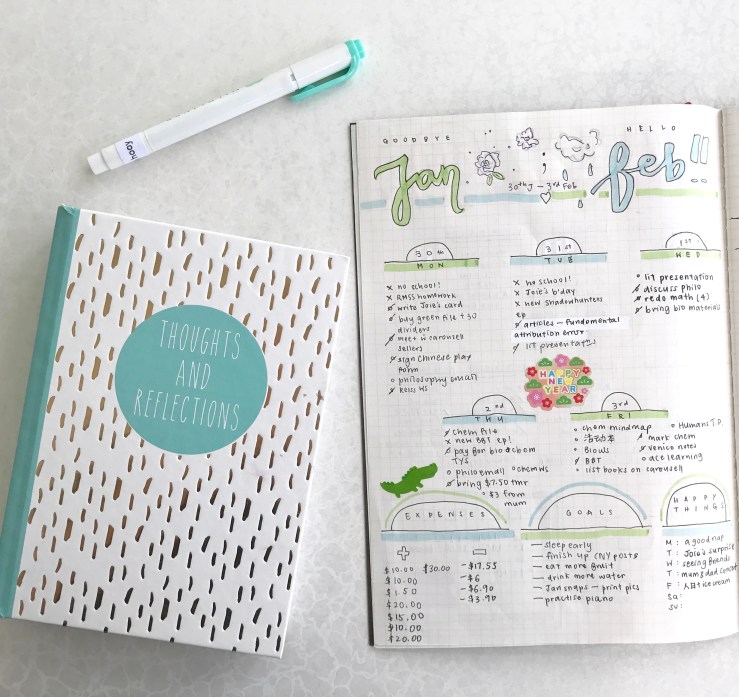 hooy
THOUGHTS
AND
REFLECTIONS
GOODBYE
HELLO
Jan
feb!!
30th J - 3rd Feb
30th
MON
x no school!
x RMSS homework
write Joie's card
buy green file + 30
dividers
meet w carousell
sellers
sign Chinese play
form
philosophy email
31st
TUE
x no school!
x Joie's b'day
x new shadowhunters
ep
articles - Fundamental
attribution error
lit presentatn
1st
WED
lit presentation
discuss philo
redo math (4)
bring bio materials
HAPPY
NEW
YEAR
2nd
THU
chem file
x new BBT ep!
pay for bio & chem
TYS
philo email
chem WS
bring $7.50 tmr
$3 from
mum
3rd
FRI
chem mindmap
活动本
Blows
BBT
list books on carousell
Humans T.P.
mark chem
Venice notes
ace learning
EXPENSES
+
$10.00 $30.00
$10.00
$1.50
$20.00
$15.00
$10.00
$20.00
-
-$17.55
-$6
-$6.90
-$3.90
GOALS
— sleep early
— finish up CNY posts
— eat more fruit
— drink more water
— Jan snaps — print pics
— practise piano
HAPPY
THINGS
M: a good nap
T: Joie's surprise
W: seeing friends
T: mum & dad
F: ice cream
Sa:
Su: